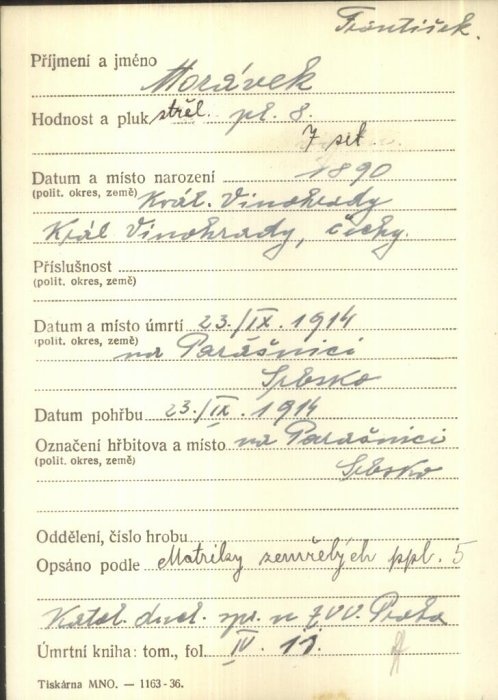 František.
Příjmení a jméno Morávek
Hodnost a pluk střel. pl. 8.
7 set.
Datum a místo narození 1890
(polit. okres, země) Král. Vinohrady
Král Vinohrady, Čechy.
Příslušnost
(polit. okres, země)
Datum a místo úmrtí 23./IX. 1914
(polit. okres, země) na Parášnici
Srbsko
Datum pohřbu 23./IX. 1914
Označení hřbitova a místo na Parašnici
(polit. okres, země) Srbsko
Oddělení, číslo hrobu
Opsáno podle Matriky zemřelých ppl. 5
Katol. duch. spr. u ZVV. Praha
Úmrtní kniha: tom., fol. IV. 11.
Tiskárna MNO. — 1163-36.